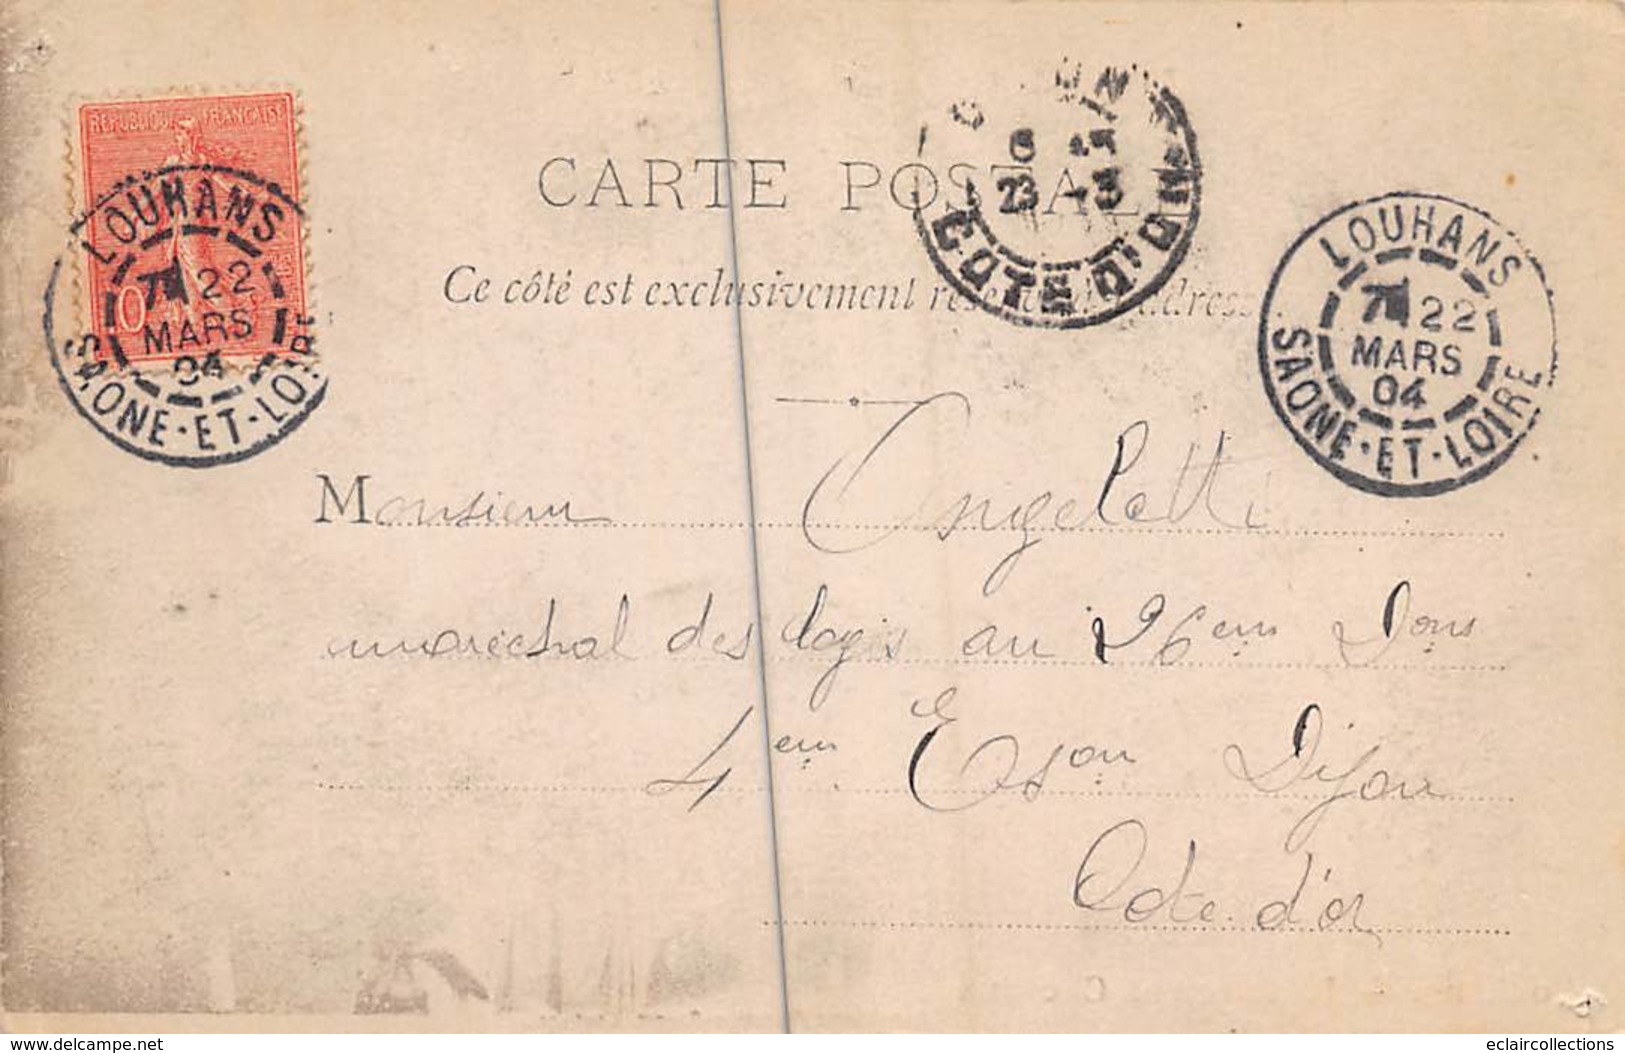 RÉPUBLIQUE FRANÇAISE
LOUHANS
7 22
MARS
04
SAONE-ET-LOIRE
CARTE POSTALE
6
23 -3
COTE D'OR
LOUHANS
7 22
MARS
04
SAONE-ET-LOIRE
Ce côté est exclusivement réservé à l'adresse
Monsieur Angeletti
maréchal des logis au 26em Dons
4em Eson Dijon
Cote d'or
© by delcampe.net
eclaircollections